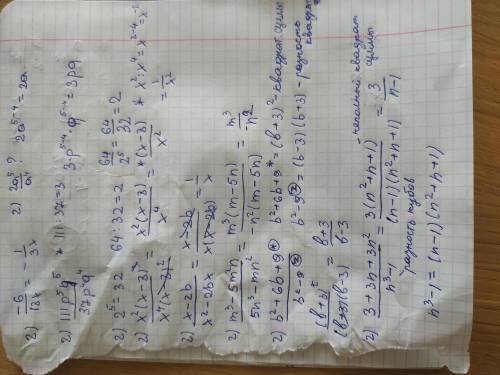 2) -6/18x = -1/3x   2) 2a⁵/a⁴ ?   2a⁵⁻⁴ = 2a
2) 111p⁵q⁵/37p⁴q⁴   * 111:37=3   3·p⁵⁻⁴·q⁵⁻⁴ = 3pq
2) 2⁵ = 32   64:32=2   64/2⁵ = 64/32 = 2
2) x²(x-3)³/x⁴(x-3)² = x²(x-3)/x⁴ = *(x-3)/x²   * x²:x⁴ = x²⁻⁴ = x⁻²
= 1/x²
2) x-2b/x²-2bx = x-2b/x(x-2b) = 1/x
2) m³-5m²n/5n³-mn² = m²(m-5n)/-n²(m-5n) = m³/-n²
2) b²+6b+9*/b²-9*   b²+6b+9* = (b+3)² квадрат суммы
b²-9* = (b-3)(b+3) - разность квадратов
(b+3)²/(b+3)(b-3) = b+3/b-3
2) 3+3n+3n²/n³-1 = 3(n²+n+1)/(n-1)(n²+n+1) - неполный квадрат суммы = 3/n-1
разность кубов
n³-1 = (n-1)(n²+n+1)